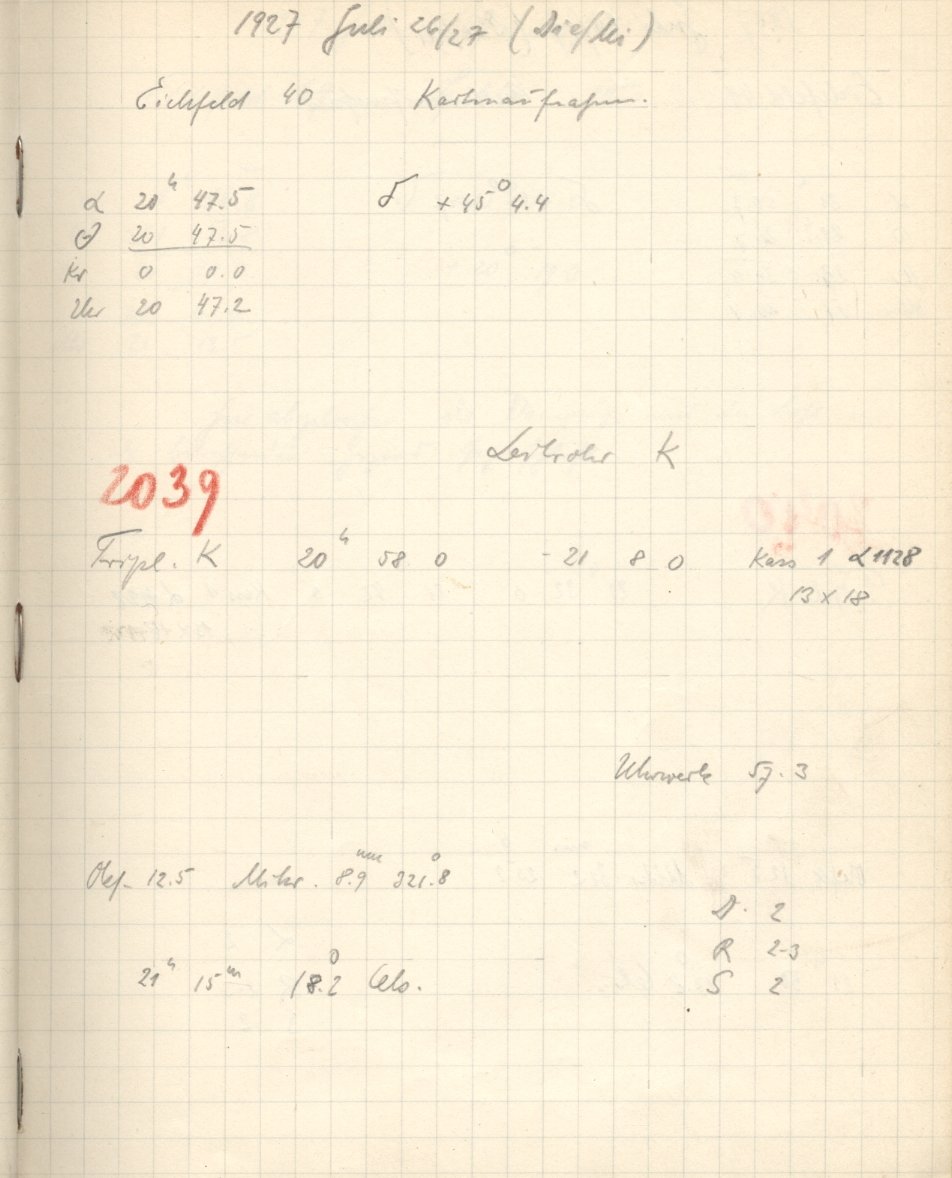 1927 Juli 26/27 (Dießki)
Eichfeld 40 Kartenaufnahm.
α 20ʰ 47.5 δ +45° 4.4
θ 20 47.5
Kr 0 0.0
Uhr 20 47.2
Leitrohr K
2039
Tripl. K 20ʰ 58 0 - 21 8 0 Kass 1 α1128
13 x 18
Uhrwerk 57.3
Okf. 12.5 Mikr. 8.9ᵐᵐ 321.°8
D. 2
R 2-3
21ʰ 15ᵐ 18.°2 Cels.
S 2